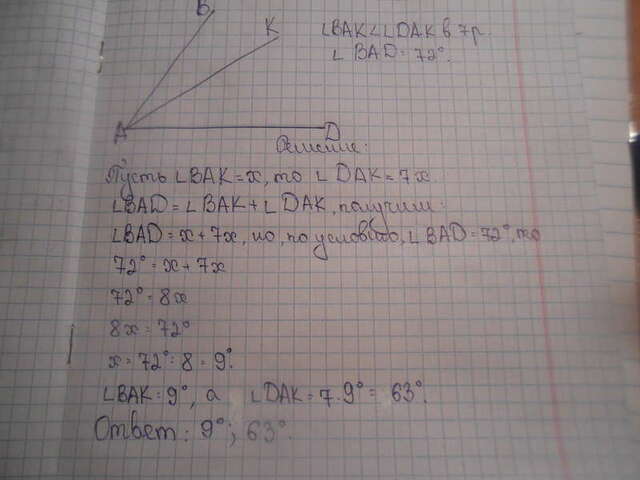 B
K
∠BAK < ∠DAK в 7р.
∠BAD = 72°.
A
D
Решение:
Пусть ∠BAK = x, то ∠DAK = 7x.
∠BAD = ∠BAK + ∠DAK, получим:
∠BAD = x + 7x, но, по условию, ∠BAD = 72°, то
72° = x + 7x
72° = 8x
8x = 72°
x = 72° : 8 = 9°.
∠BAK = 9°, а ∠DAK = 7 · 9° = 63°.
Ответ: 9°; 63°.